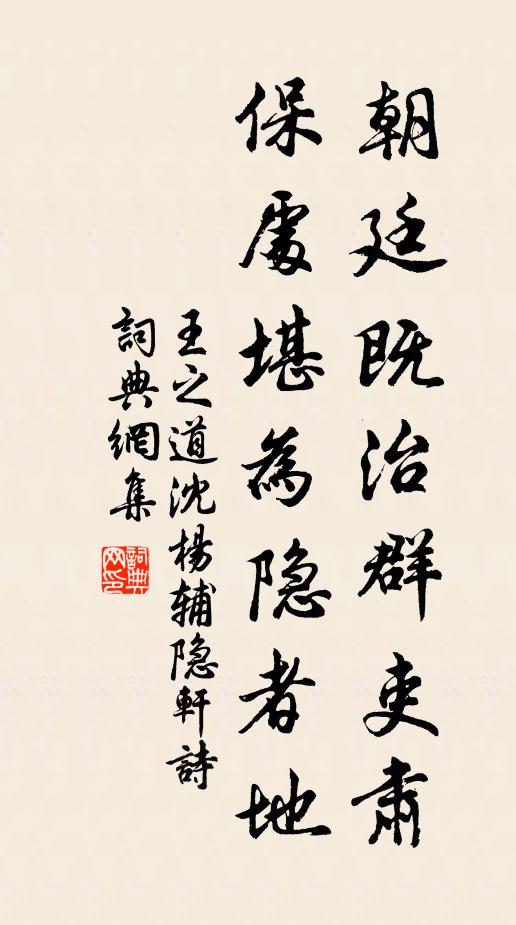 朝廷既治群吏肅
保處堪為隐者地
王之道沈楊辅隐軒詩
詞典網集
詞典网印